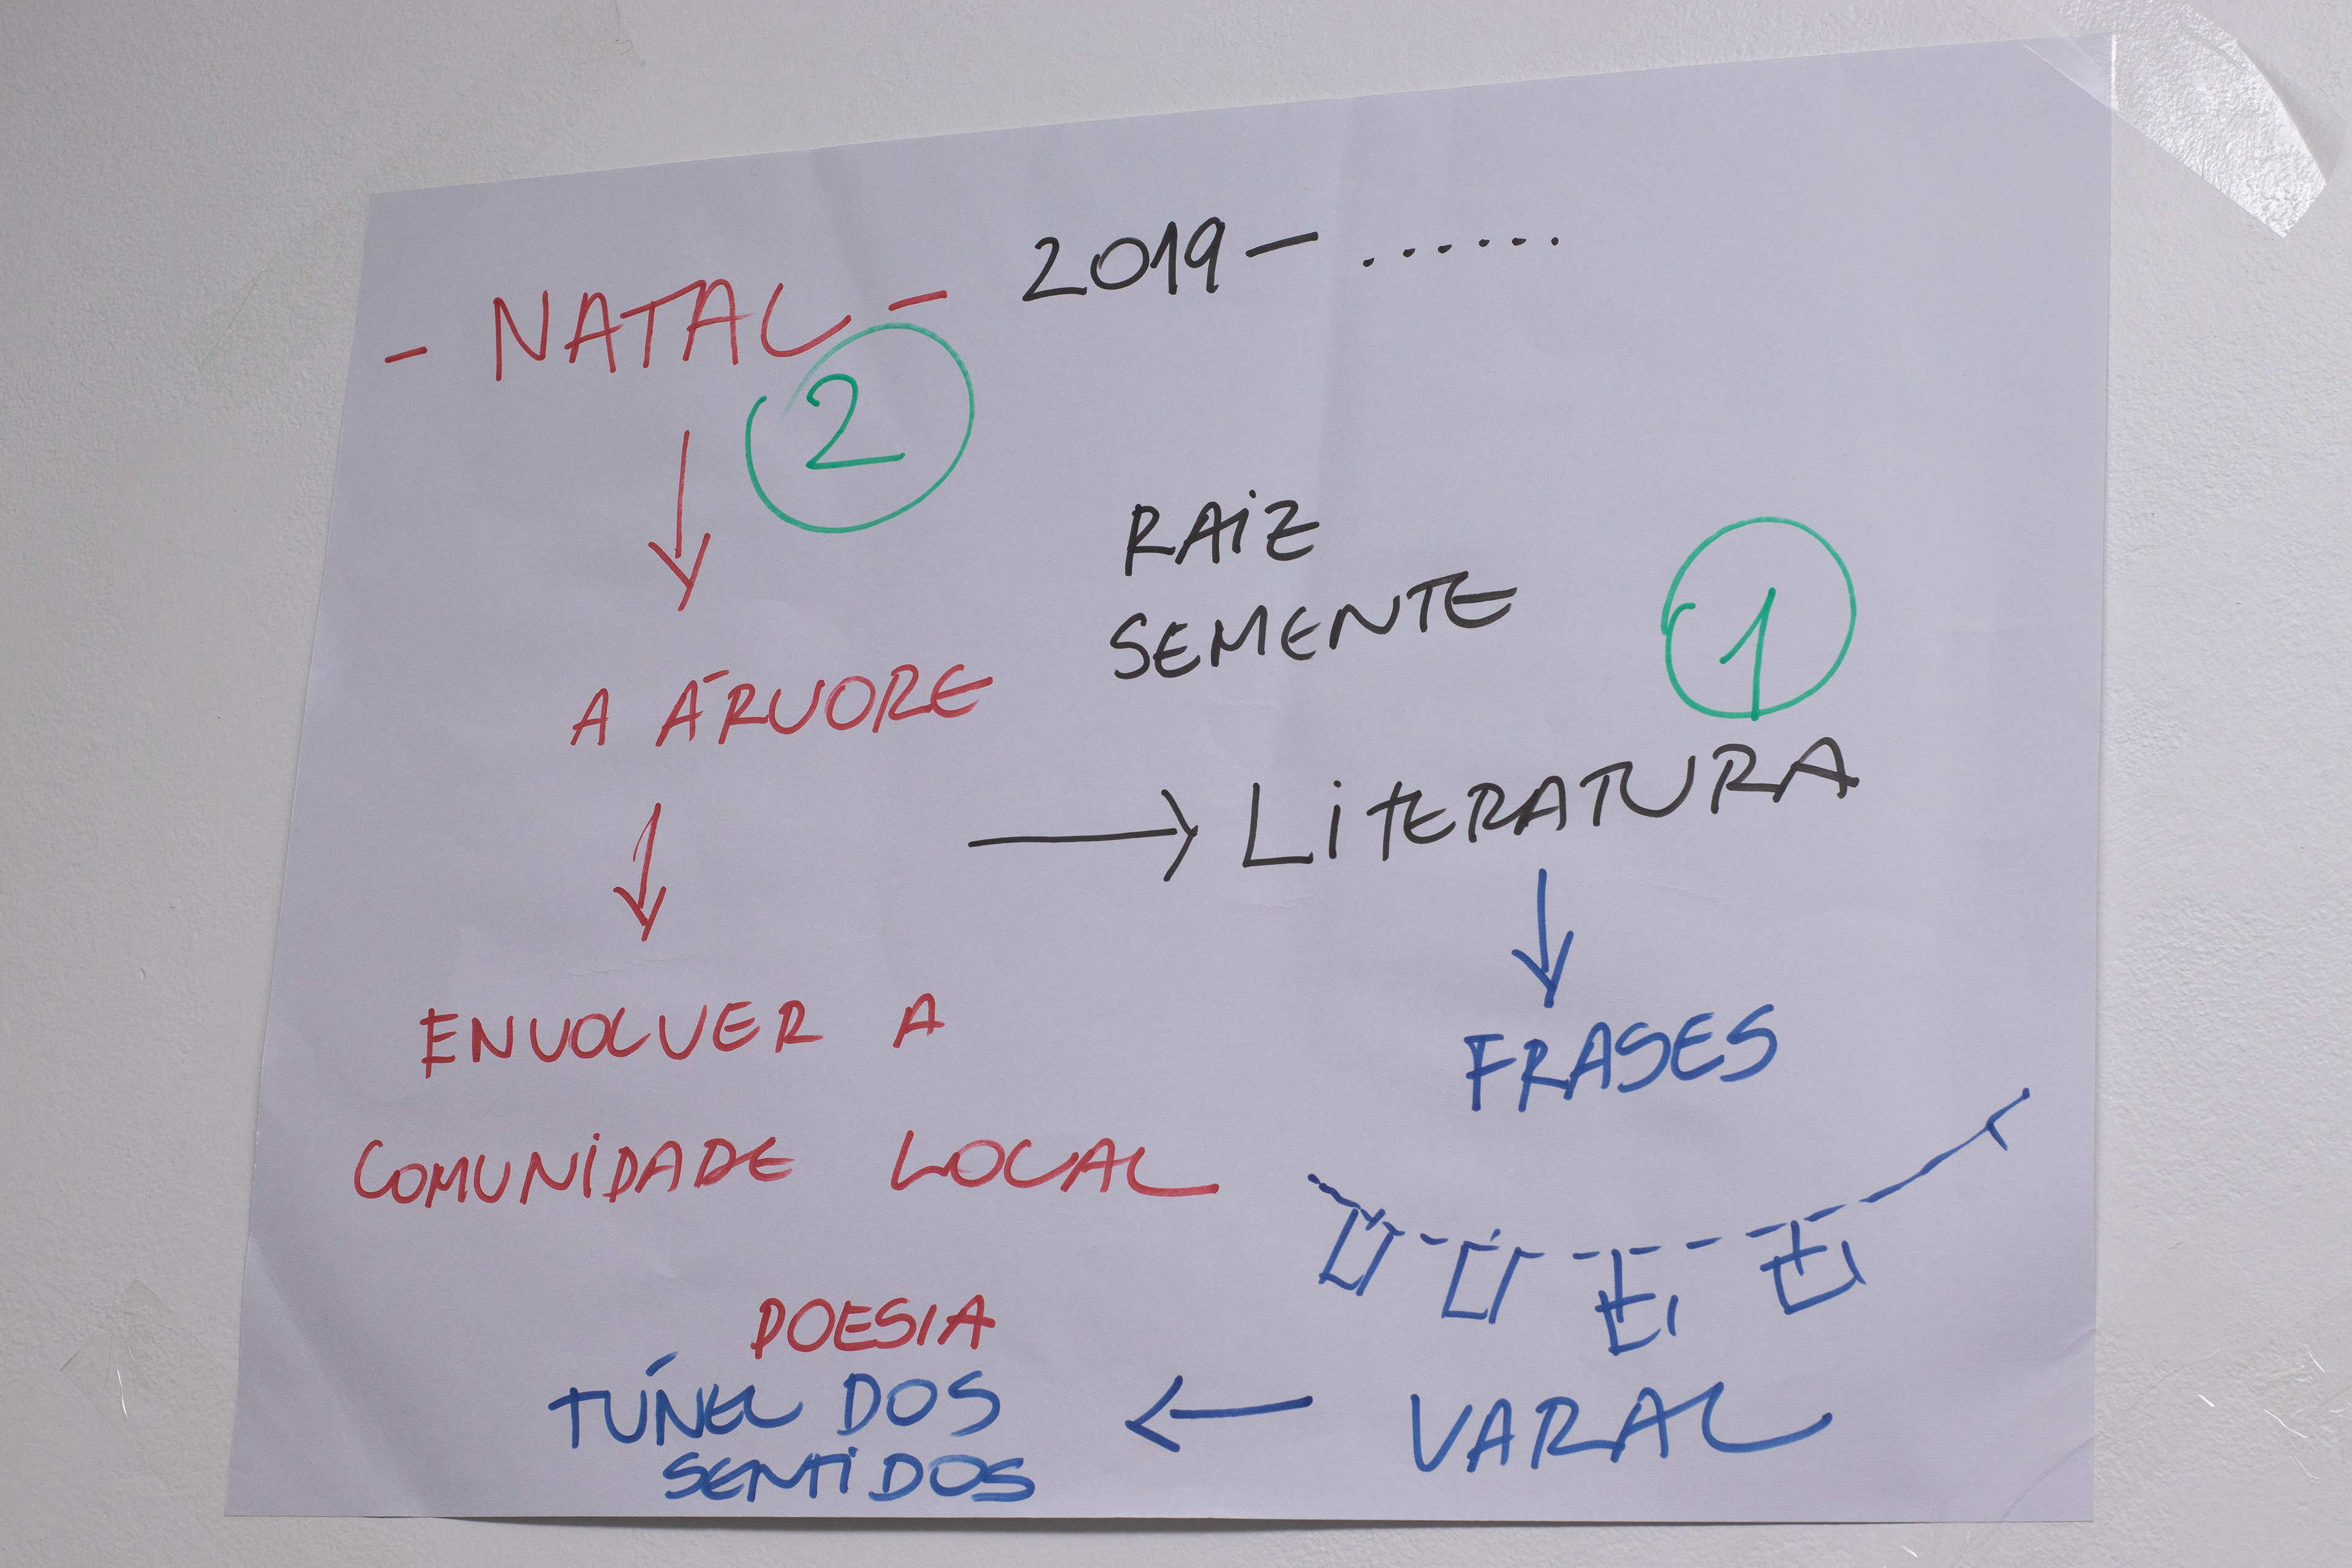 - NATAL - 2019 - ......
2
RAiZ
SEMENTE
1
A ÁRVORE
LiTERATURA
ENVOLVER A
FRASES
COMUNiDADE LOCAL
POESIA
TÚNEL DOS
SENTiDOS
VARAL